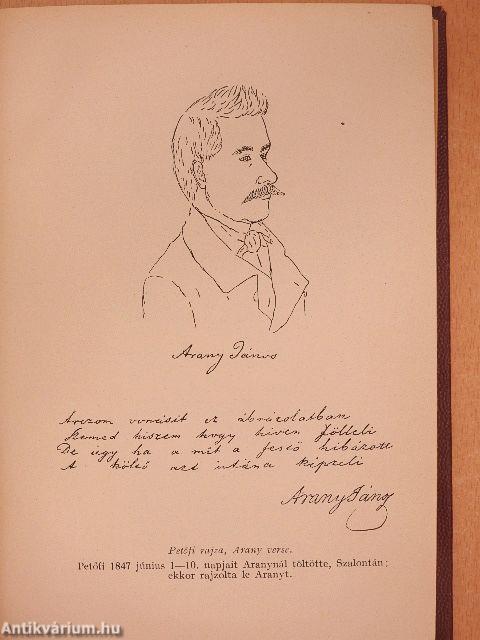 Arany János
Arczom vonásit ez ábrázolatban
Szemed hiszem hogy híven fölleli
De úgy ha a mit a festő hibázott
A költő azt utána képzeli
Arany János
Petőfi rajza, Arany verse.
Petőfi 1847 június 1—10. napjait Aranynál töltötte, Szalontán;
ekkor rajzolta le Aranyt.
Antikvárium.hu